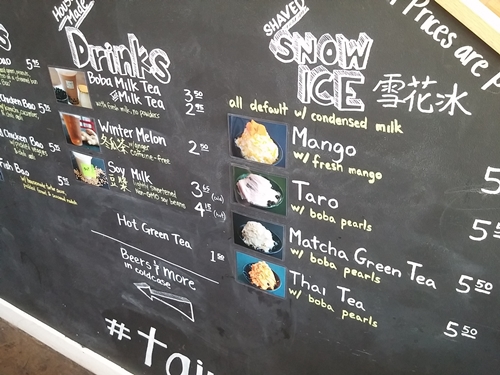 Prices are
House
Made
Drinks
Boba Milk Tea 3 50
Milk Tea 2 95
w/ fresh milk, no powders
Winter Melon 2 50
冬瓜茶 w/ ginger
caffeine-free
Soy Milk 3 65
豆漿 lightly sweetened
non-GMO soy beans 4 15
Hot Green Tea 1 50
Beers & more
in coldcase
#tai
SHAVED
SNOW
ICE 雪花冰
all default w/ condensed milk
Mango 5
w/ fresh mango
Taro 5
w/ boba pearls
Matcha Green Tea 5 50
w/ boba pearls
Thai Tea 5 50
w/ boba pearls
5 50
Chicken Bao 5 50
Chicken Bao 5 50
Fish Bao 5 75